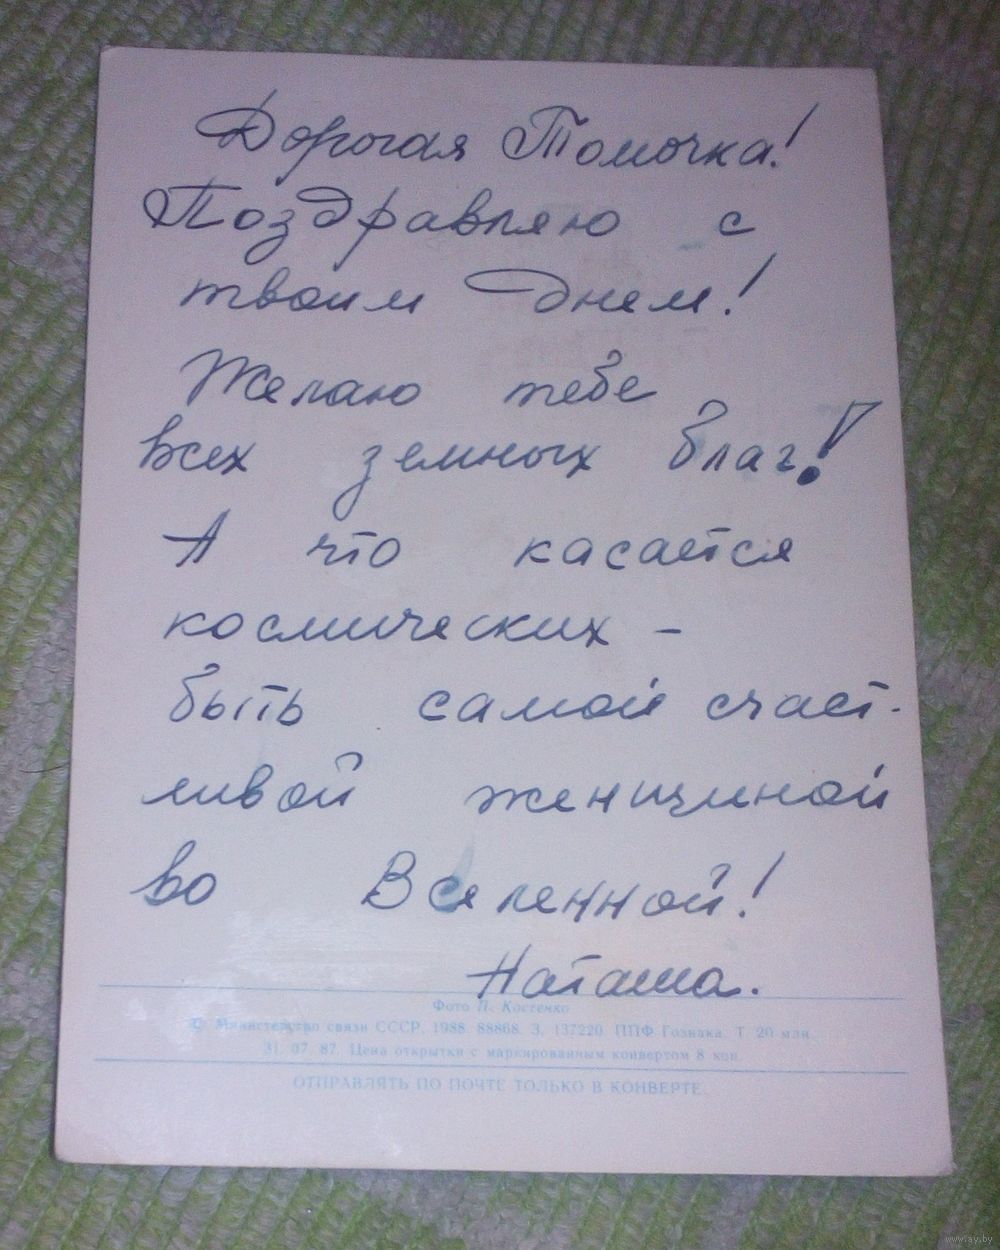 Дорогая Томочка!
Поздравляю с
твоим Днем!
Желаю тебе
всех земных благ!
А что касается
космических -
быть самой счаст-
ливой женщиной
во Вселенной!
Наташа.
Фото П. Костенко
© Министерство связи СССР. 1988. 88868. З. 137220. ППФ Гознака. Т. 20 млн.
31. 07. 87. Цена открытки с маркированным конвертом 8 коп.
ОТПРАВЛЯТЬ ПО ПОЧТЕ ТОЛЬКО В КОНВЕРТЕ.
www.ay.by